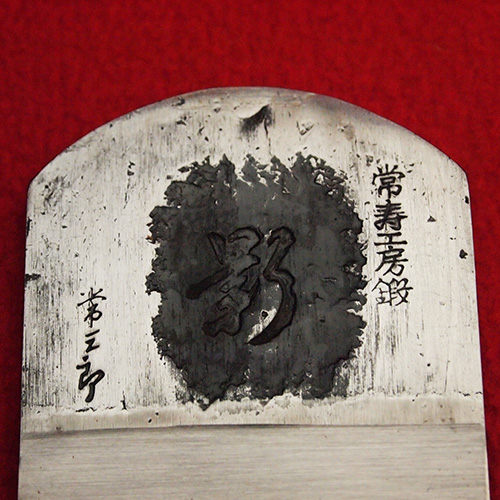 常寿工房鍛
影
常三郎